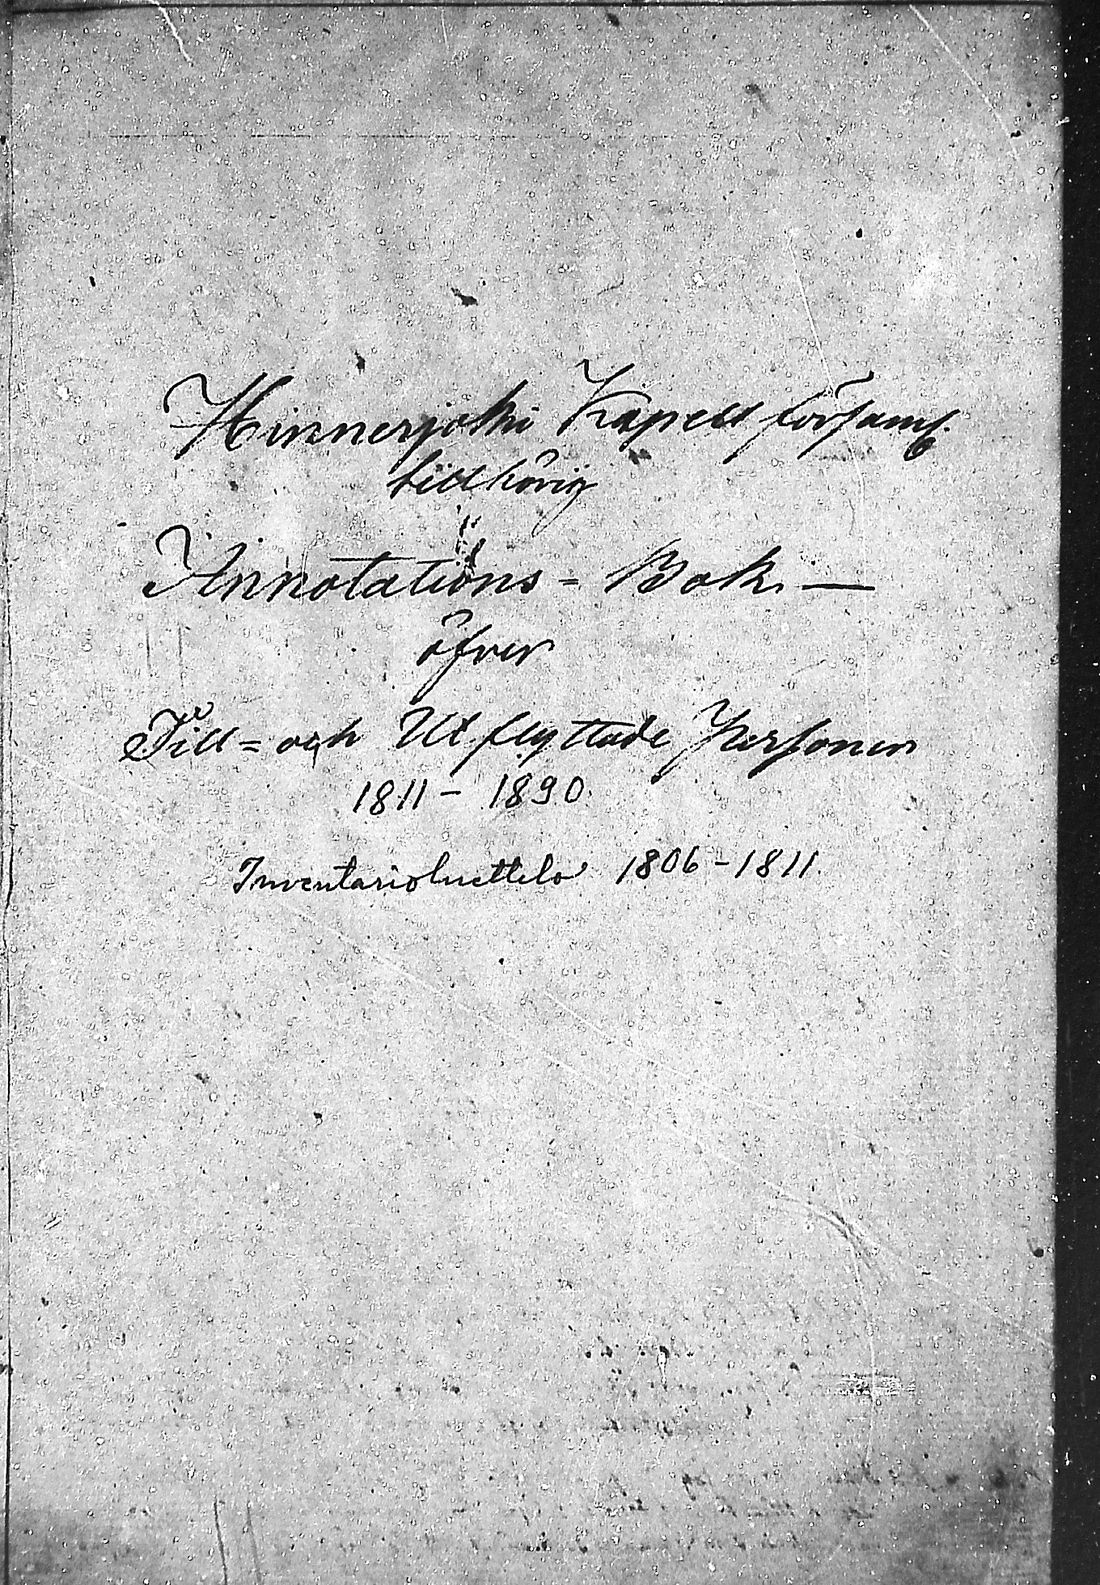 Hinnerjoki Kapell församl.
tillhörig
Annotations = Bok —
öfver
Till = och Utflyttade Personer
1811 - 1890.
Inventarioluettelo 1806 - 1811.